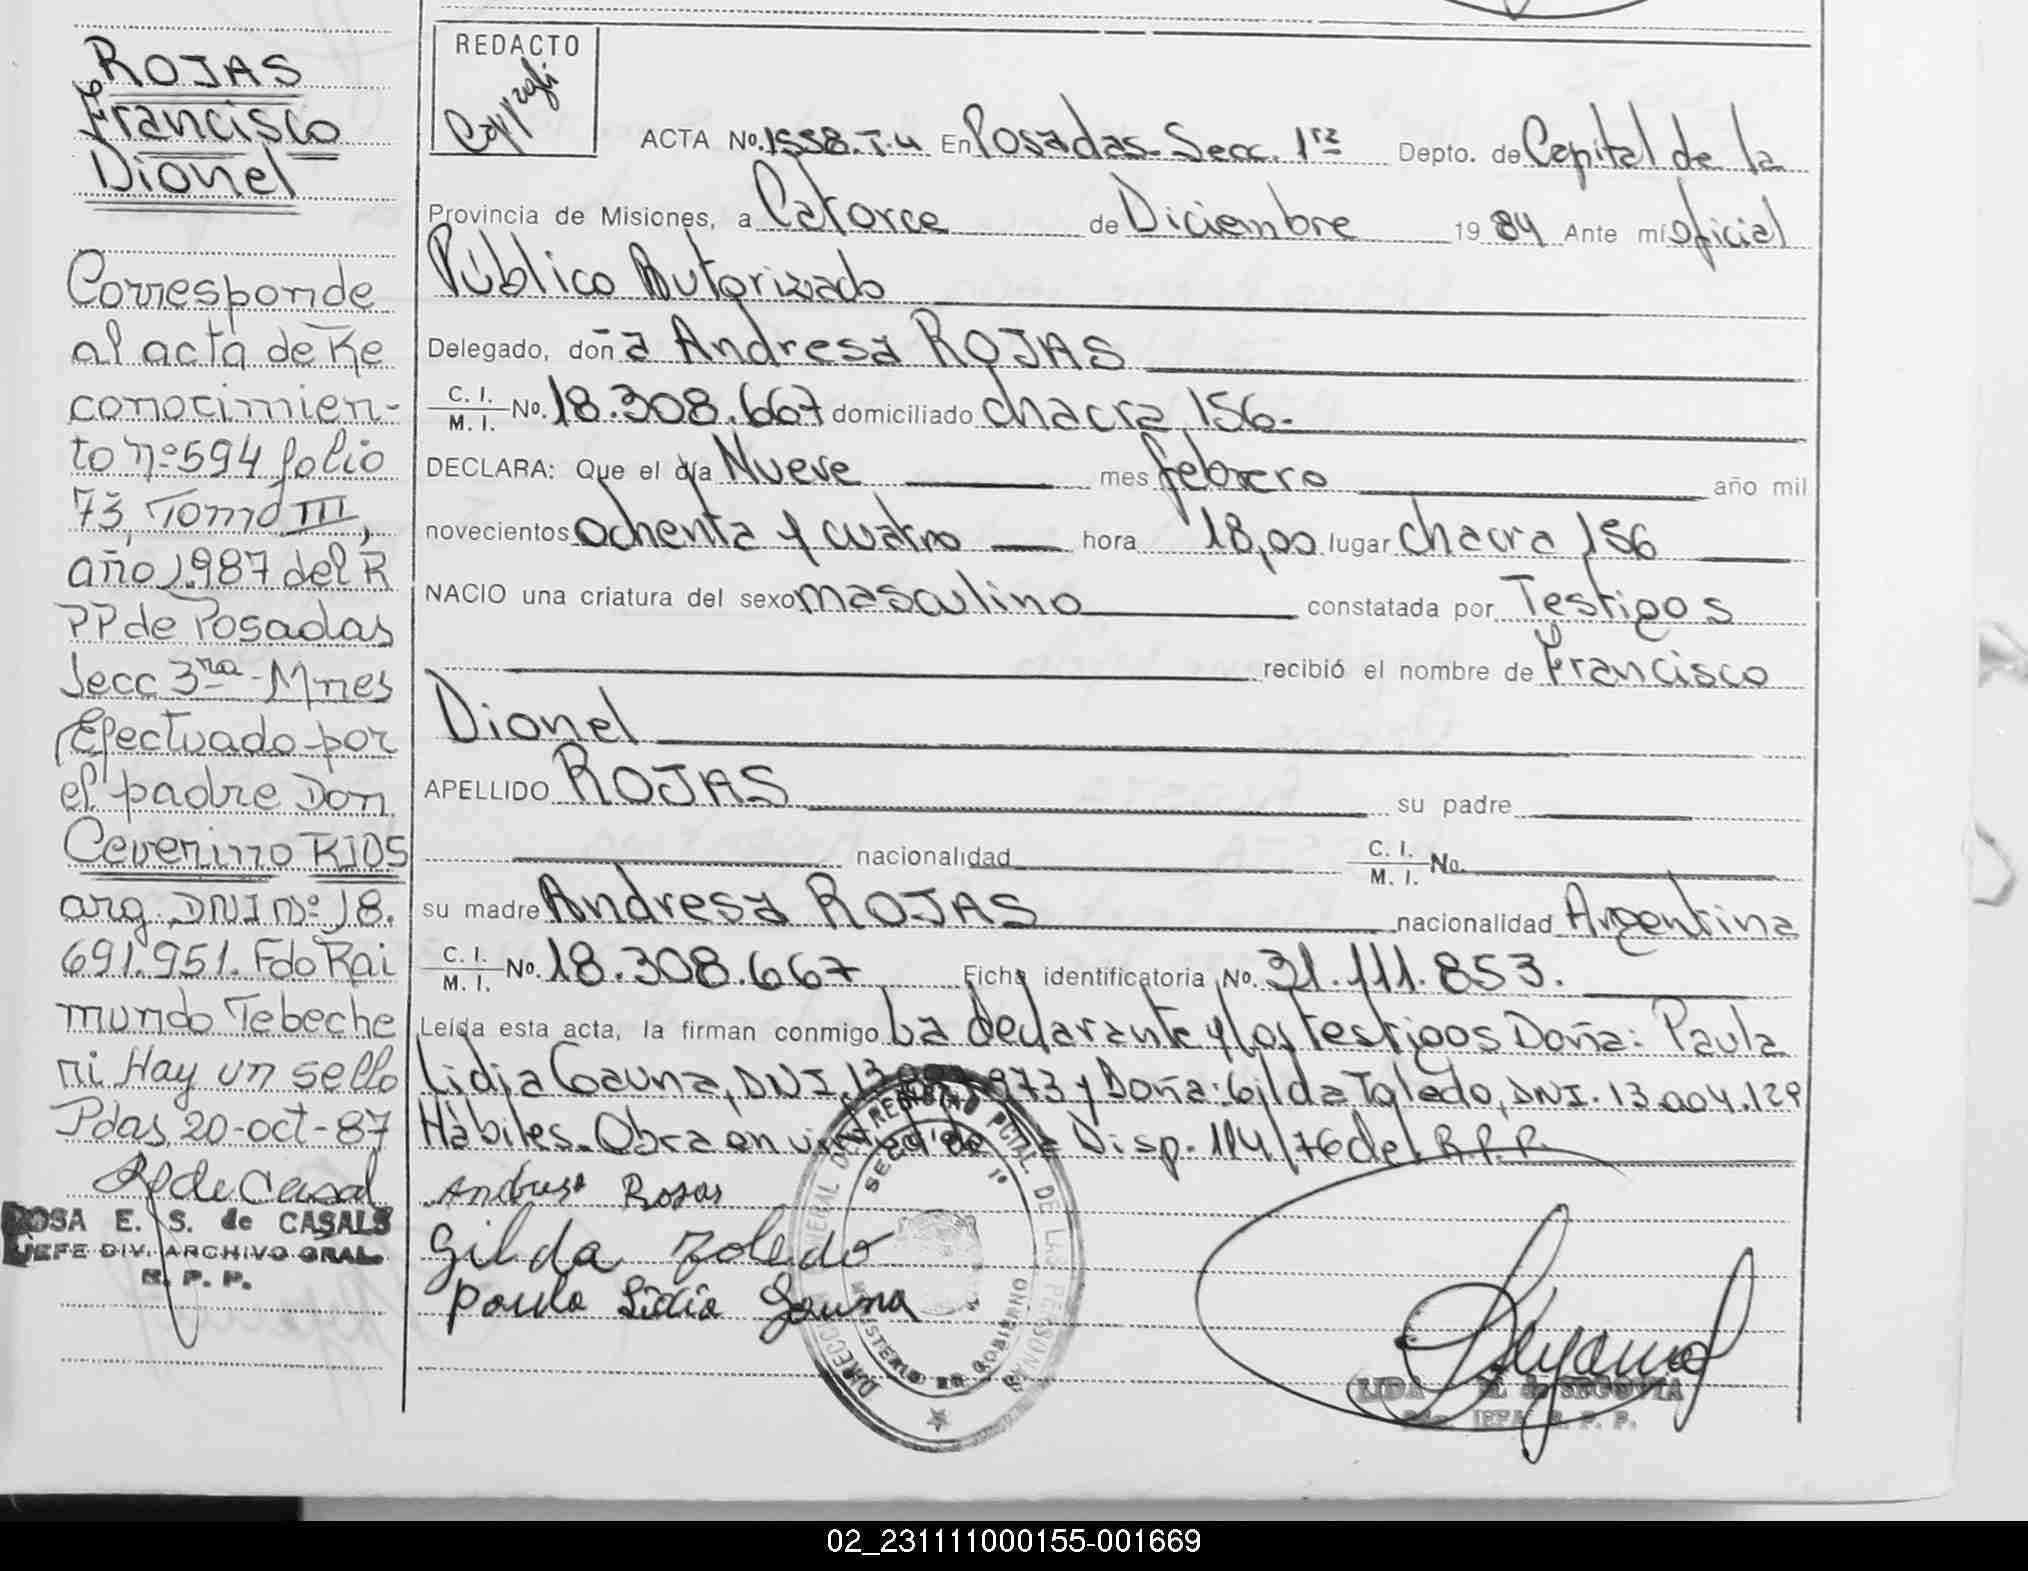 ROJAS
Francisco
Dionel
Corresponde
al acta de Re
conocimien-
to nº 594 folio
73, Tomo III,
año 1.987 del R
PP de Posadas
Secc 3ra - Mnes
Efectuado por
el padre Don
Ceverino RIOS
arg. DNI Nº 18.
691.951. Fdo Rai
mundo Tebeche
ni Hay un sello
Pdas, 20-oct-87
ROSA E. S. de CASALS
JEFE DIV. ARCHIVO GRAL
R. P. P.
REDACTO
ACTA No. 1558.T.4 En Posadas-Secc. 1ra Depto. de Capital de la
Provincia de Misiones, a Catorce de Diciembre 19 84 Ante mí oficial
Público Autorizado
Delegado, doña Andresa ROJAS
C. I. / M. I. No. 18.308.667 domiciliado chacra 156.
DECLARA: Que el día Nueve mes febrero año mil
novecientos ochenta y cuatro hora 18,00 lugar chacra 156
NACIO una criatura del sexo masculino constatada por Testigos
recibió el nombre de Francisco
Dionel
APELLIDO ROJAS su padre
nacionalidad C. I. / M. I. No.
su madre Andresa ROJAS nacionalidad Argentina
C. I. / M. I. No. 18.308.667 Ficha identificatoria No. 31.111.853.
Leída esta acta, la firman conmigo La declarante y los testigos Doña: Paula
Lidia Gauna, DNI. 13. 973 y Doña: Gilda Toledo, DNI. 13.004.129
Hábiles. Obra en virtud de la Disp. 114/76 del R.P.P.
Andresa Rojas
Gilda Toledo
Paula Lidia Gauna
DIRECCION GENERAL DE REGISTRO PCIAL. DE LAS PERSONAS
SECC. 1º
MINISTERIO DE GOBIERNO
LIDA de SEGOVIA
JEFA R. P. P.
02_231111000155-001669